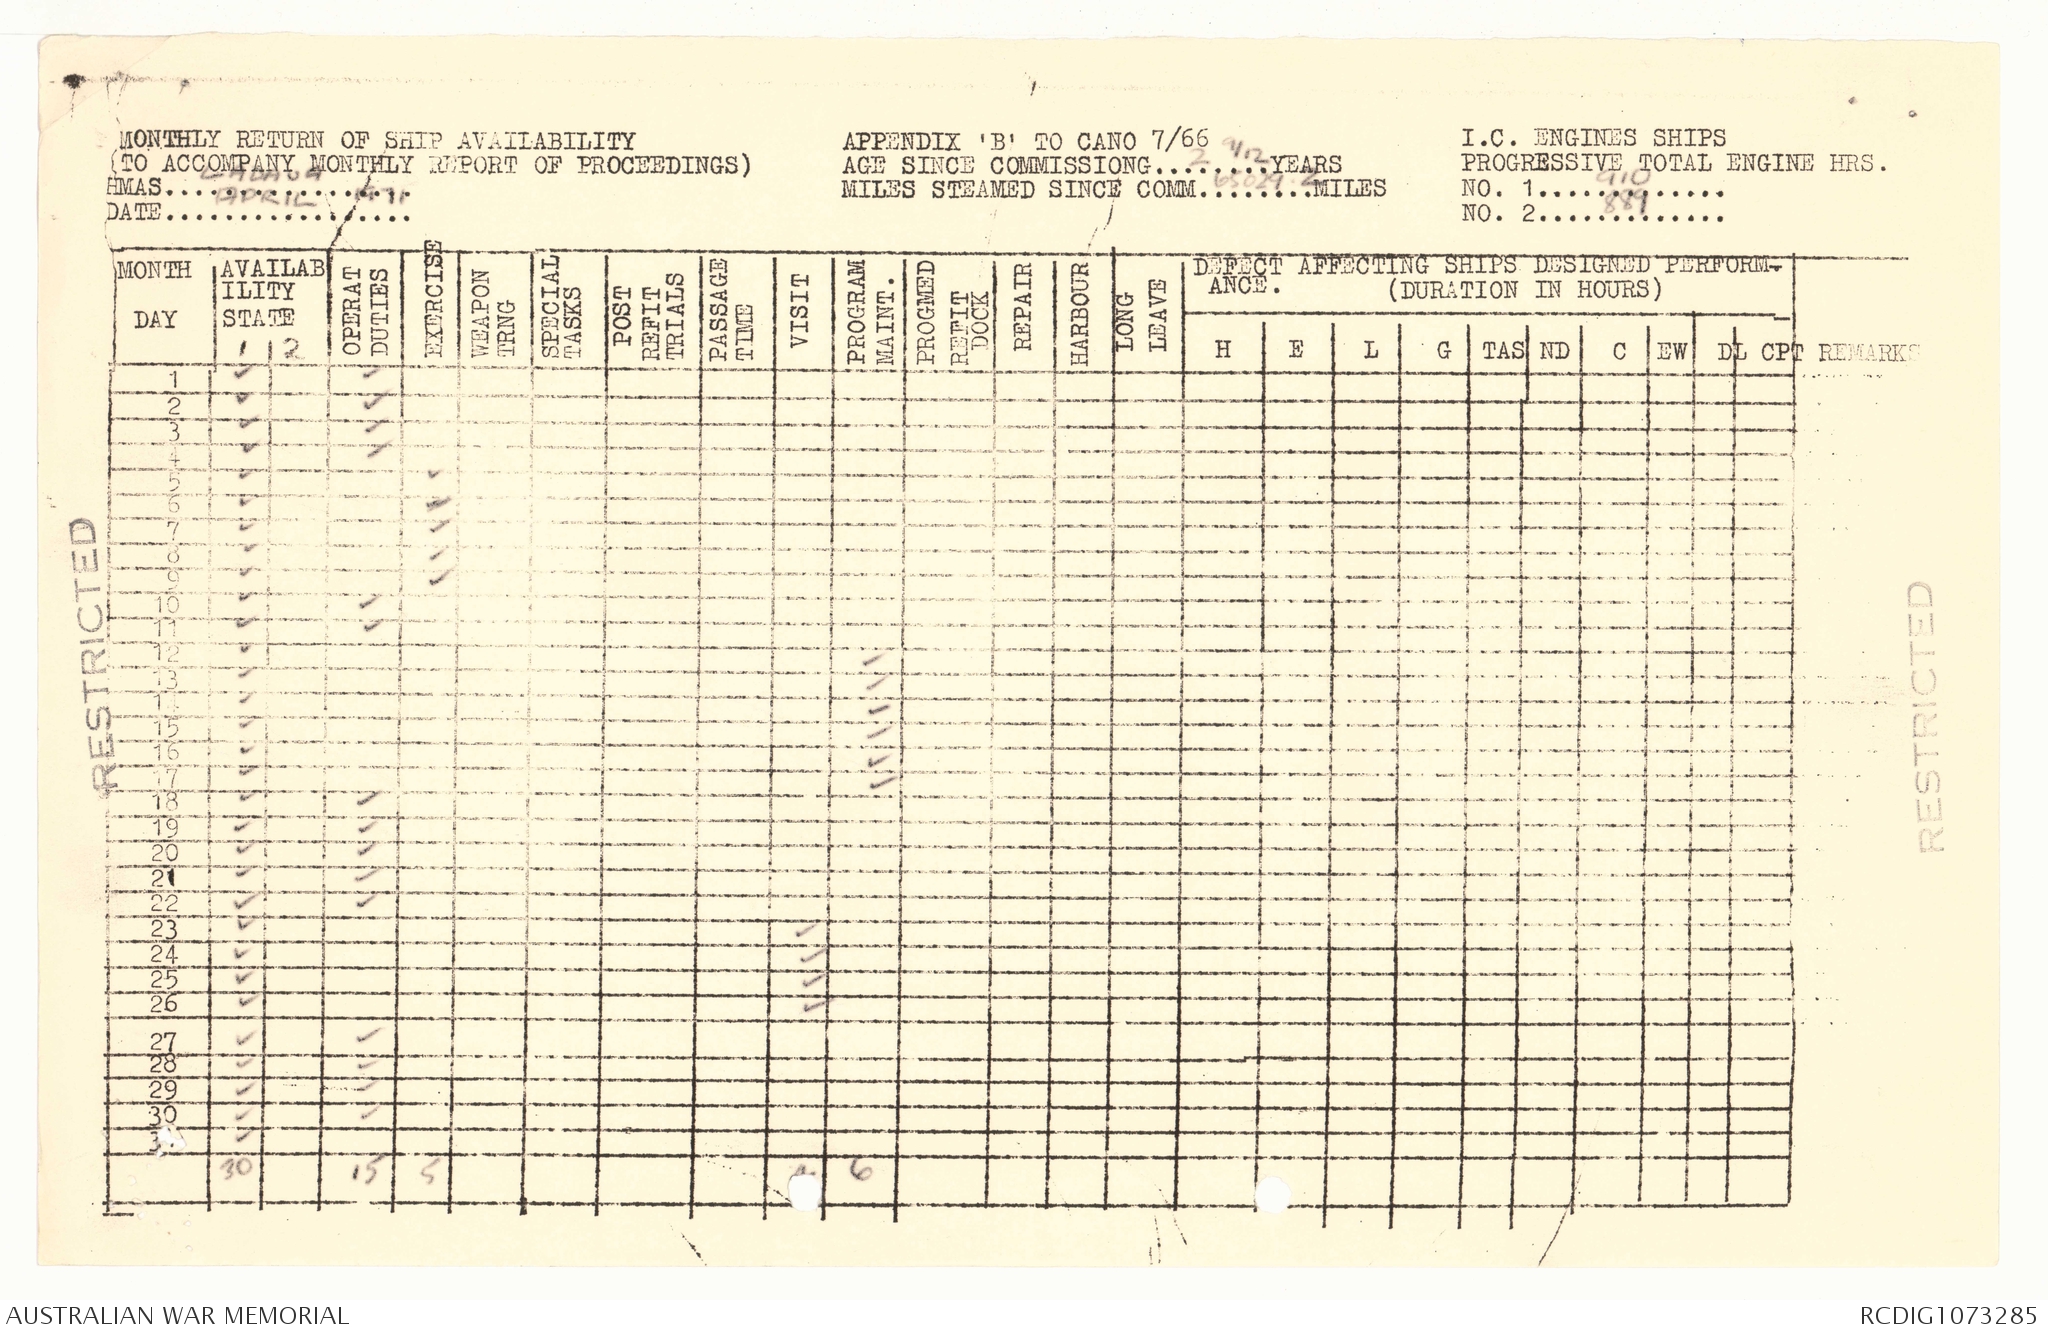 MONTHLY RETURN OF SHIP AVAILABILITY
(TO ACCOMPANY MONTHLY REPORT OF PROCEEDINGS)
HMAS.................
DATE.................
APRIL 1971
APPENDIX 'B' TO CANO 7/66
AGE SINCE COMMISSIONG.. 2 9/12 YEARS
MILES STEAMED SINCE COMM. 65029.2 MILES
I.C. ENGINES SHIPS
PROGRESSIVE TOTAL ENGINE HRS.
NO. 1.... 910 ........
NO. 2.... 889 ........
MONTH
DAY
AVAILAB
ILITY
STATE
1 2
OPERAT
DUTIES
EXERCISE
WEAPON
TRNG
SPECIAL
TASKS
POST
REFIT
TRIALS
PASSAGE
TIME
VISIT
PROGRAM
MAINT.
PROGMED
REFIT
DOCK
REPAIR
HARBOUR
LONG
LEAVE
DEFECT AFFECTING SHIPS DESIGNED PERFORM-
ANCE. (DURATION IN HOURS)
H E L G TAS ND C EW DL CPT REMARKS
1 ✓ ✓
2 ✓ ✓
3 ✓ ✓
4 ✓ ✓
5 ✓ ✓
6 ✓ ✓
7 ✓ ✓
8 ✓ ✓
9 ✓ ✓
10 ✓ ✓
11 ✓ ✓
12 ✓ ✓
13 ✓ ✓
14 ✓ ✓
15 ✓ ✓
16 ✓ ✓
17 ✓ ✓
18 ✓ ✓
19 ✓ ✓
20 ✓ ✓
21 ✓ ✓
22 ✓ ✓
23 ✓ ✓
24 ✓ ✓
25 ✓ ✓
26 ✓ ✓
27 ✓ ✓
28 ✓ ✓
29 ✓ ✓
30 ✓ ✓
30 15 5 6
RESTRICTED
RESTRICTED
AUSTRALIAN WAR MEMORIAL
RCDIG1073285